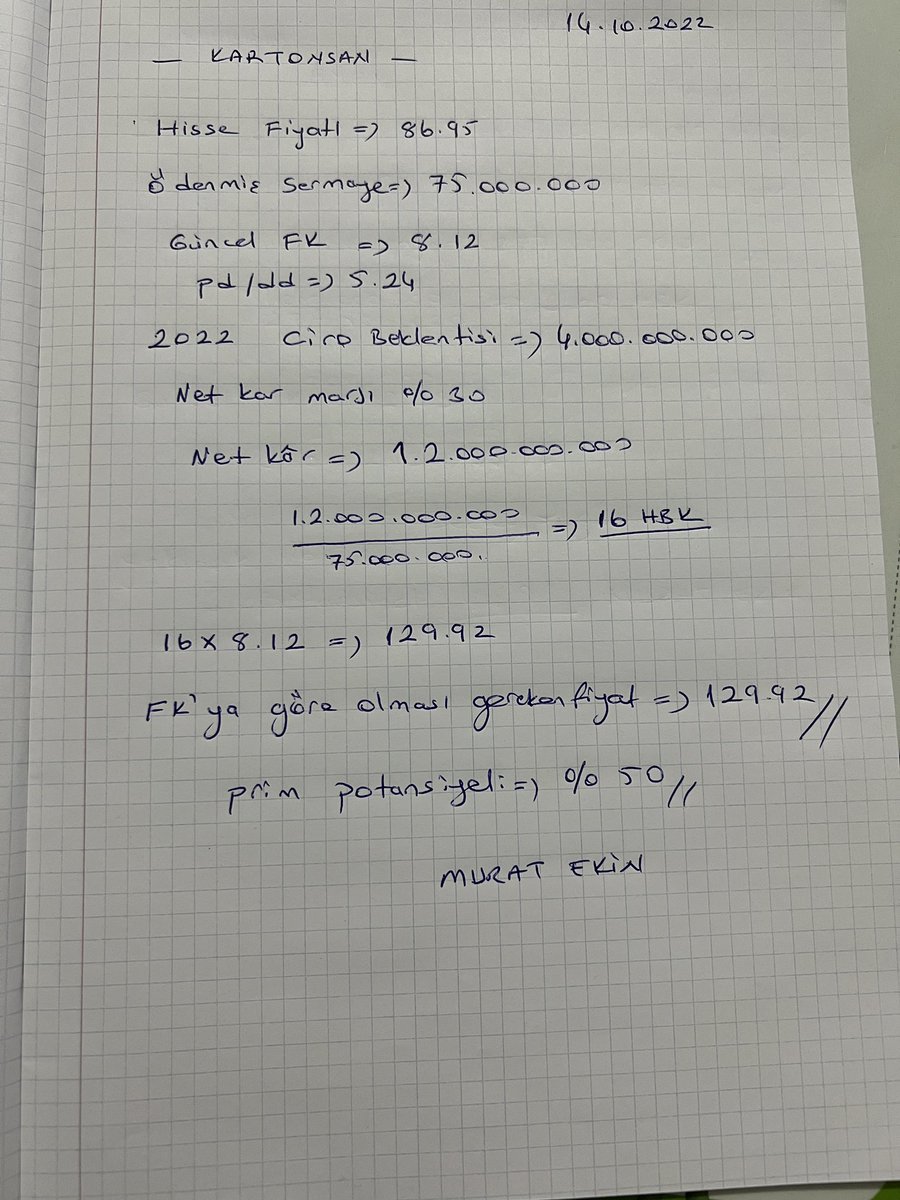 14.10.2022
— KARTONSAN —
Hisse Fiyatı => 86.95
Ödenmiş Sermaye => 75.000.000
Güncel FK => 8.12
pd/dd => 5.24
2022 Ciro Beklentisi => 4.000.000.000
Net kar marjı %30
Net kâr => 1.2.000.000.000
1.2.000.000.000
75.000.000. => 16 HBK
16 x 8.12 => 129.92
FK'ya göre olması gereken fiyat => 129.92 //
prim potansiyeli => %50 //
MURAT EKİN